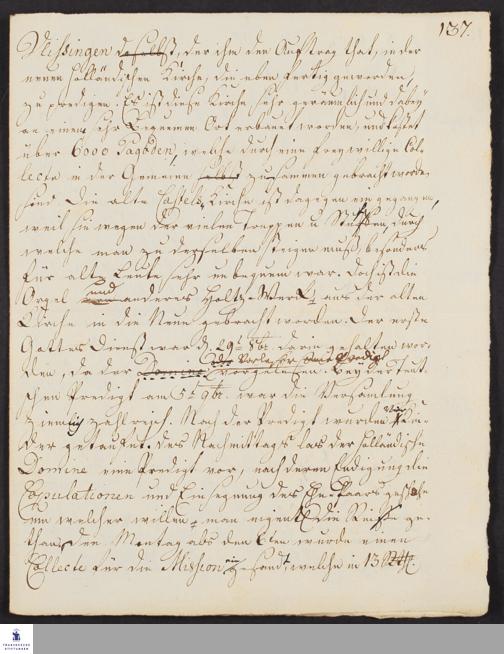 137.
Vlissingen daselbst, der ihm den Auftrag that, in der
neuen holländischen Kirche, die eben fertig geworden,
zu predigen. Es ist diese Kirche sehr geräumlich und dabey
an einem sehr bequemen Ort erbauet worden, und kostet
über 6000 Pagoden, welche durch eine freywillige Col-
lecte in der Gemeine selbst zusammen gebracht worden
sind. Die alte Castels Kirche ist dagegen eingegangen,
weil sie wegen der vielen Treppen u. Stuffen, durch
welche man zu derselben steigen muß, besonders
für alte Leute sehr unbequem war. Doch ist die
Orgel und anderes Holtz-Werk aus der alten
Kirche in die Neue gebracht worden. Der erste
Gottes Dienst war d. 29t. 8br. darin gehalten wor-
den, da der Domine Vorleser eine Predigt vorgelesen. Bey der teut-
schen Predigt am 5t. 9br. war die Versamlung
ziemlich zahlreich. Nach der Predigt wurden Kin-
der getauft. Des Nachmittags las der holländische
Domine eine Predigt vor, nach deren Endigung die
Copulationen und Einsegnung des Ehe-Paars geschahe
um welcher willen man eigentl. die Reise ge-
than. Den Montag als den 6ten wurde eine
Collecte für die Mission eingesandt, welche in 13
FRANCKESCHE
STIFTUNGEN